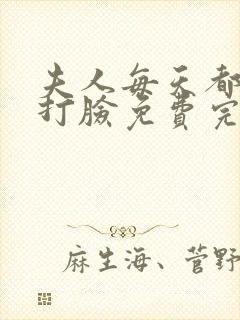 夫人每天都
打臉免費完
麻生海、菅野